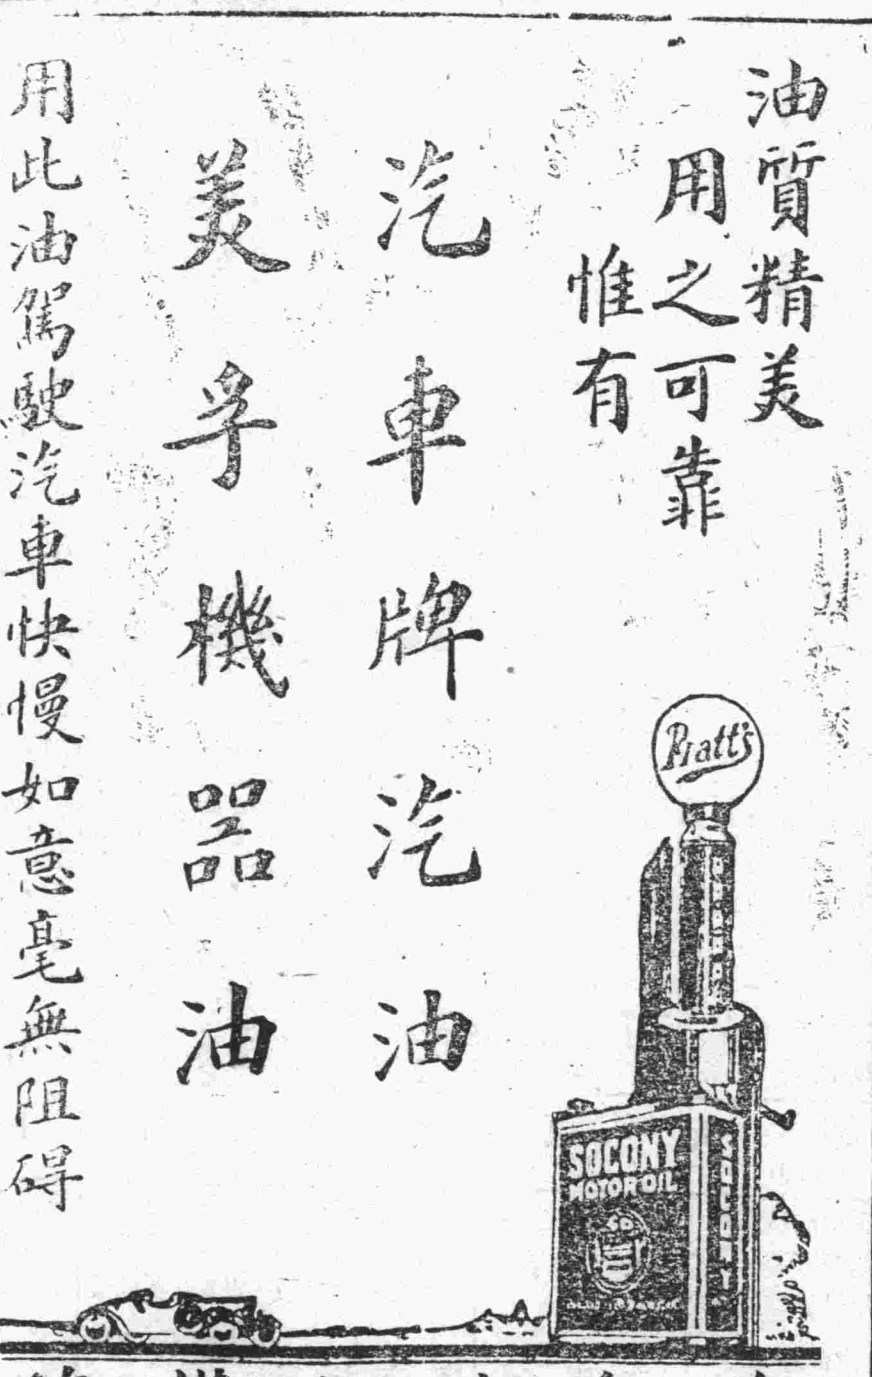 油質精美
用之可靠
惟有
汽車牌汽油
美孚機器油
用此油駕駛汽車快慢如意毫無阻碍
Pratt's
SOCONY
MOTOR OIL
SOCONY